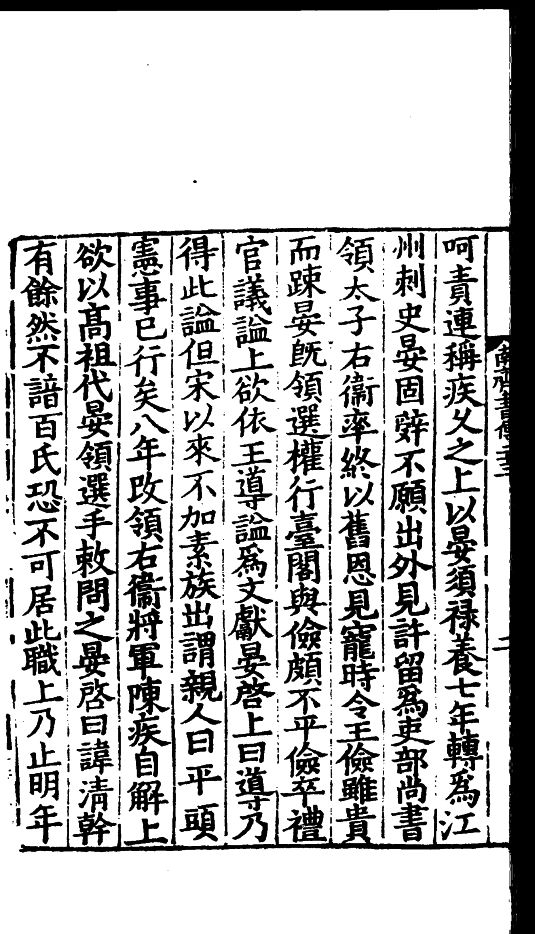 南齊書傳二十三
二
呵責連稱疾乆之上以晏須禄養七年轉爲江
州刺史晏固辤不願出外見許留爲吏部尚書
領太子右衞率終以舊恩見寵時令王儉雖貴
而踈晏旣領選權行臺閣與儉頗不平儉卒禮
官議謚上欲依王導謚爲文獻晏啓上曰導乃
得此謚但宋以來不加素族出謂親人曰平頭
憲事已行矣八年改領右衞將軍陳疾自解上
欲以髙祖代晏領選手敕問之晏啓曰諱清幹
有餘然不諳百氏恐不可居此職上乃止明年